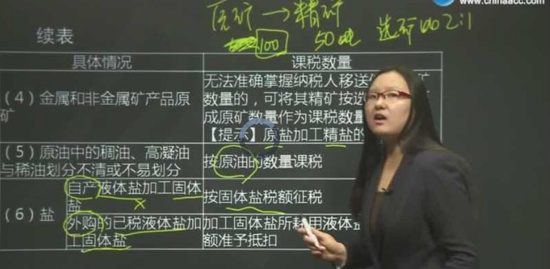 www.chinaacc.com
原矿→精矿
100 50吨 选矿比2:1
续表
具体情况
课税数量
(4)金属和非金属矿产品原矿
无法准确掌握纳税人移送
数量的，可将其精矿按选
成原矿数量作为课税数量
【提示】原盐加工精盐的
(5)原油中的稠油、高凝油
与稀油划分不清或不易划分
按原油的数量课税
(6)盐
自产液体盐加工固体
盐
按固体盐税额征税
外购的已税液体盐加
工固体盐
加工固体盐所耗用液体
额准予抵扣